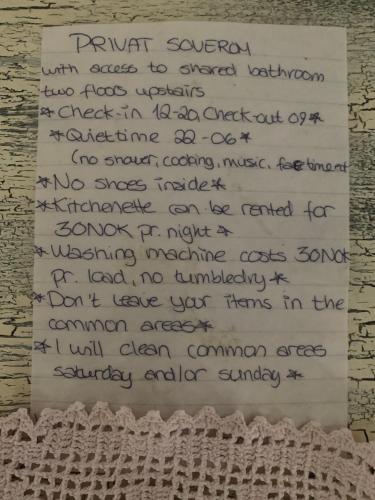 PRIVAT SOVEROM
with access to shared bathroom
two floors upstairs
*Check-in 12-20, Check-out 09*
*Quiettime 22-06*
(no shower, cooking, music, facetime etc
*No shoes inside*
*Kitchenette can be rented for
30NOK pr. night*
*Washing machine costs 30NOK
pr. load, no tumbledry*
*Don't leave your items in the
common areas*
*I will clean common areas
saturday and/or sunday*